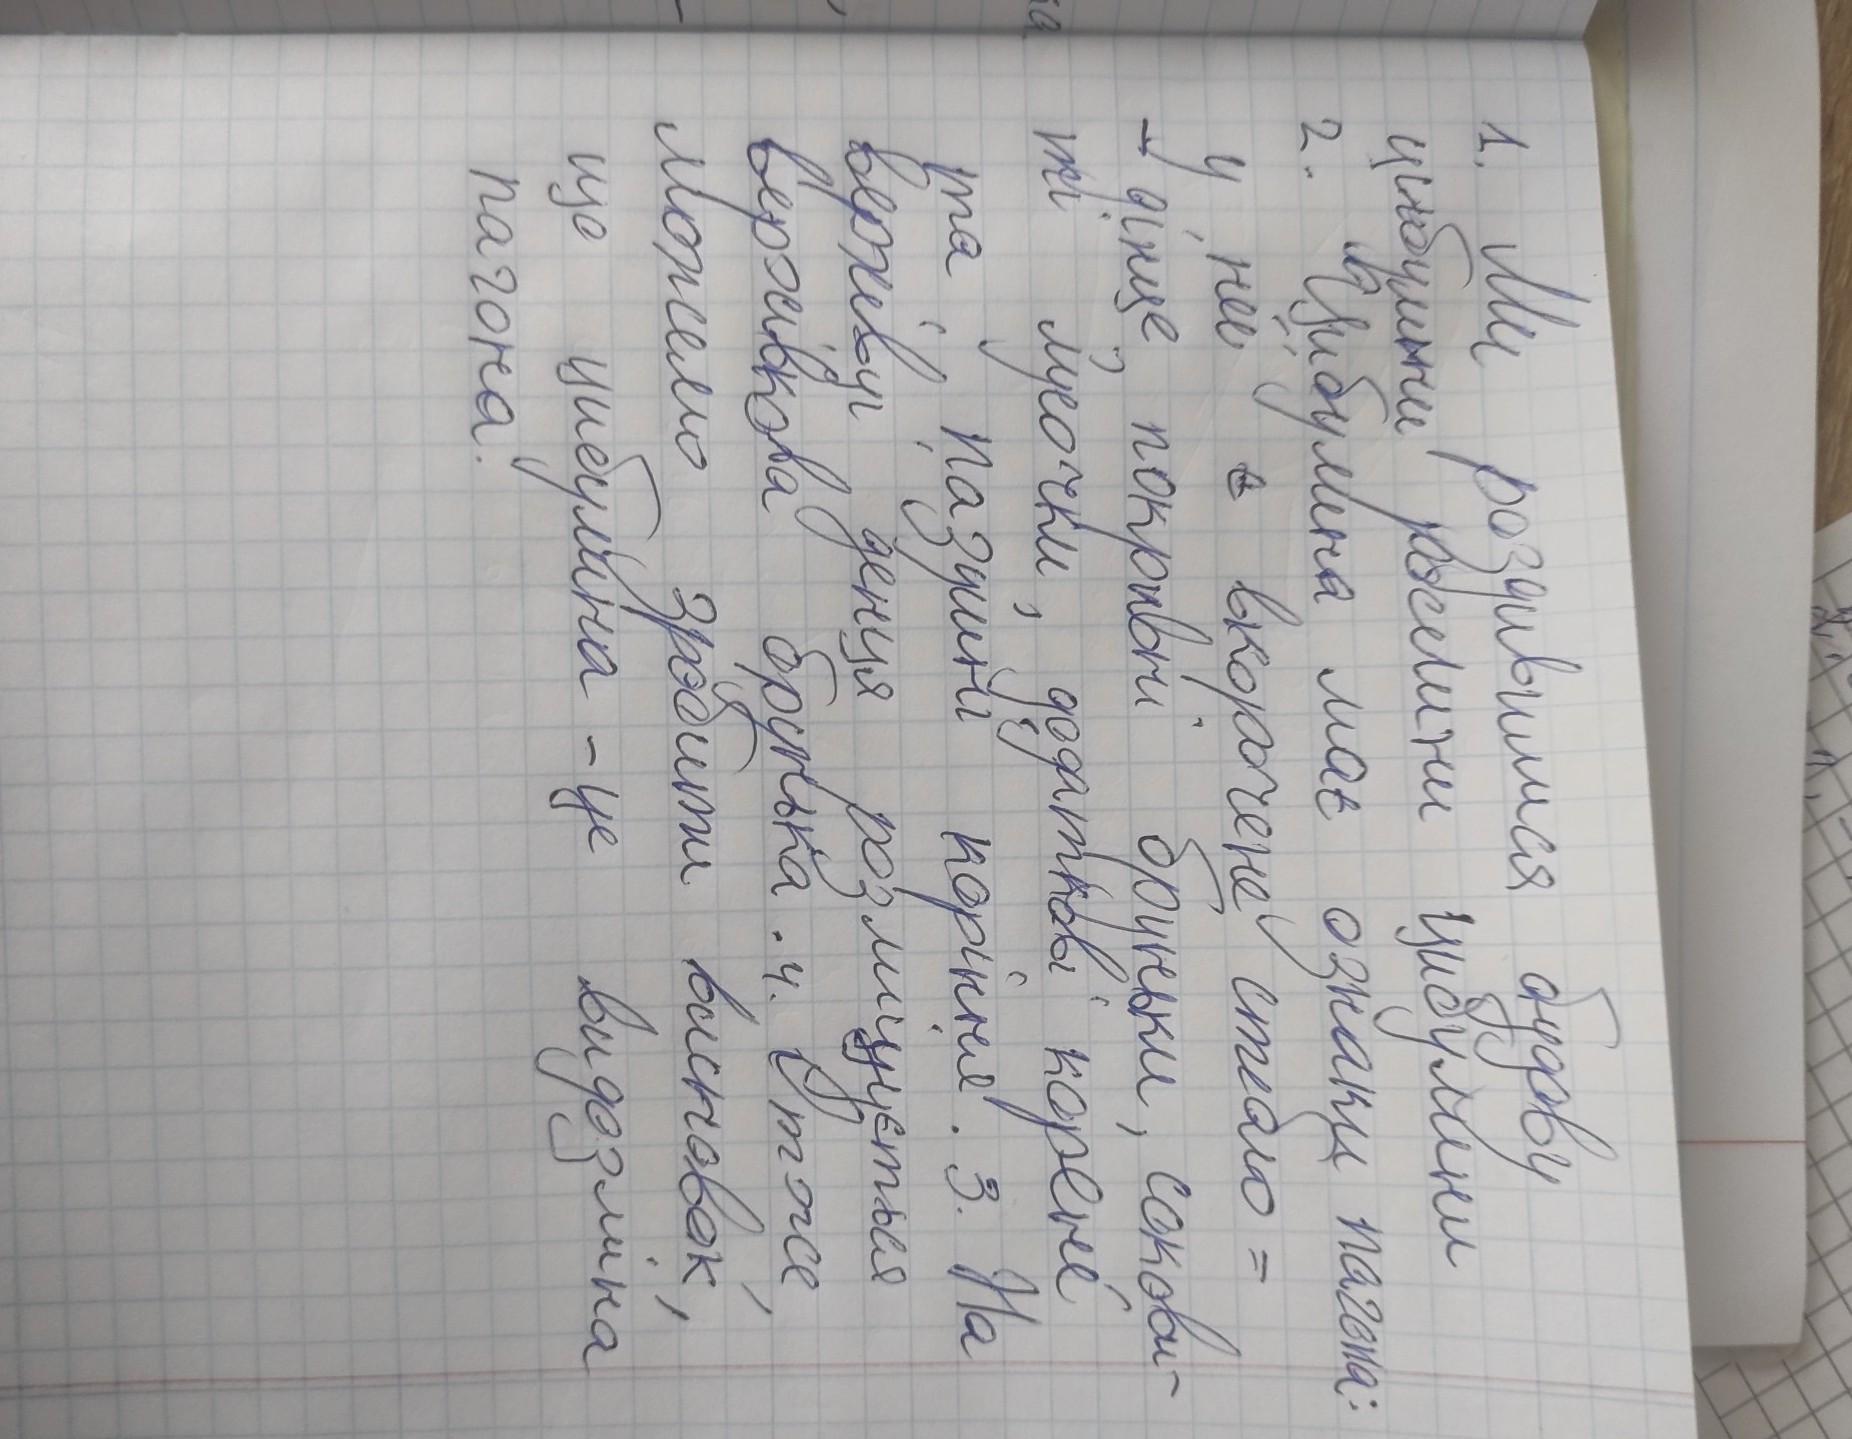 1. Ми роздивилися будову
цибулини рослини цибулини
2. Цибулина має ознаки пагона:
у неї є вкорочене стебло =
→ дінце покривні бруньки, соковит-
ті лусочки, додаткові корені
та і пазушні коріння. 3. На
верхівці денця розміщується
верхівкова брунька. 4. Отже,
можемо зробити висновок,
що цибулина - це видозміна
пагона.